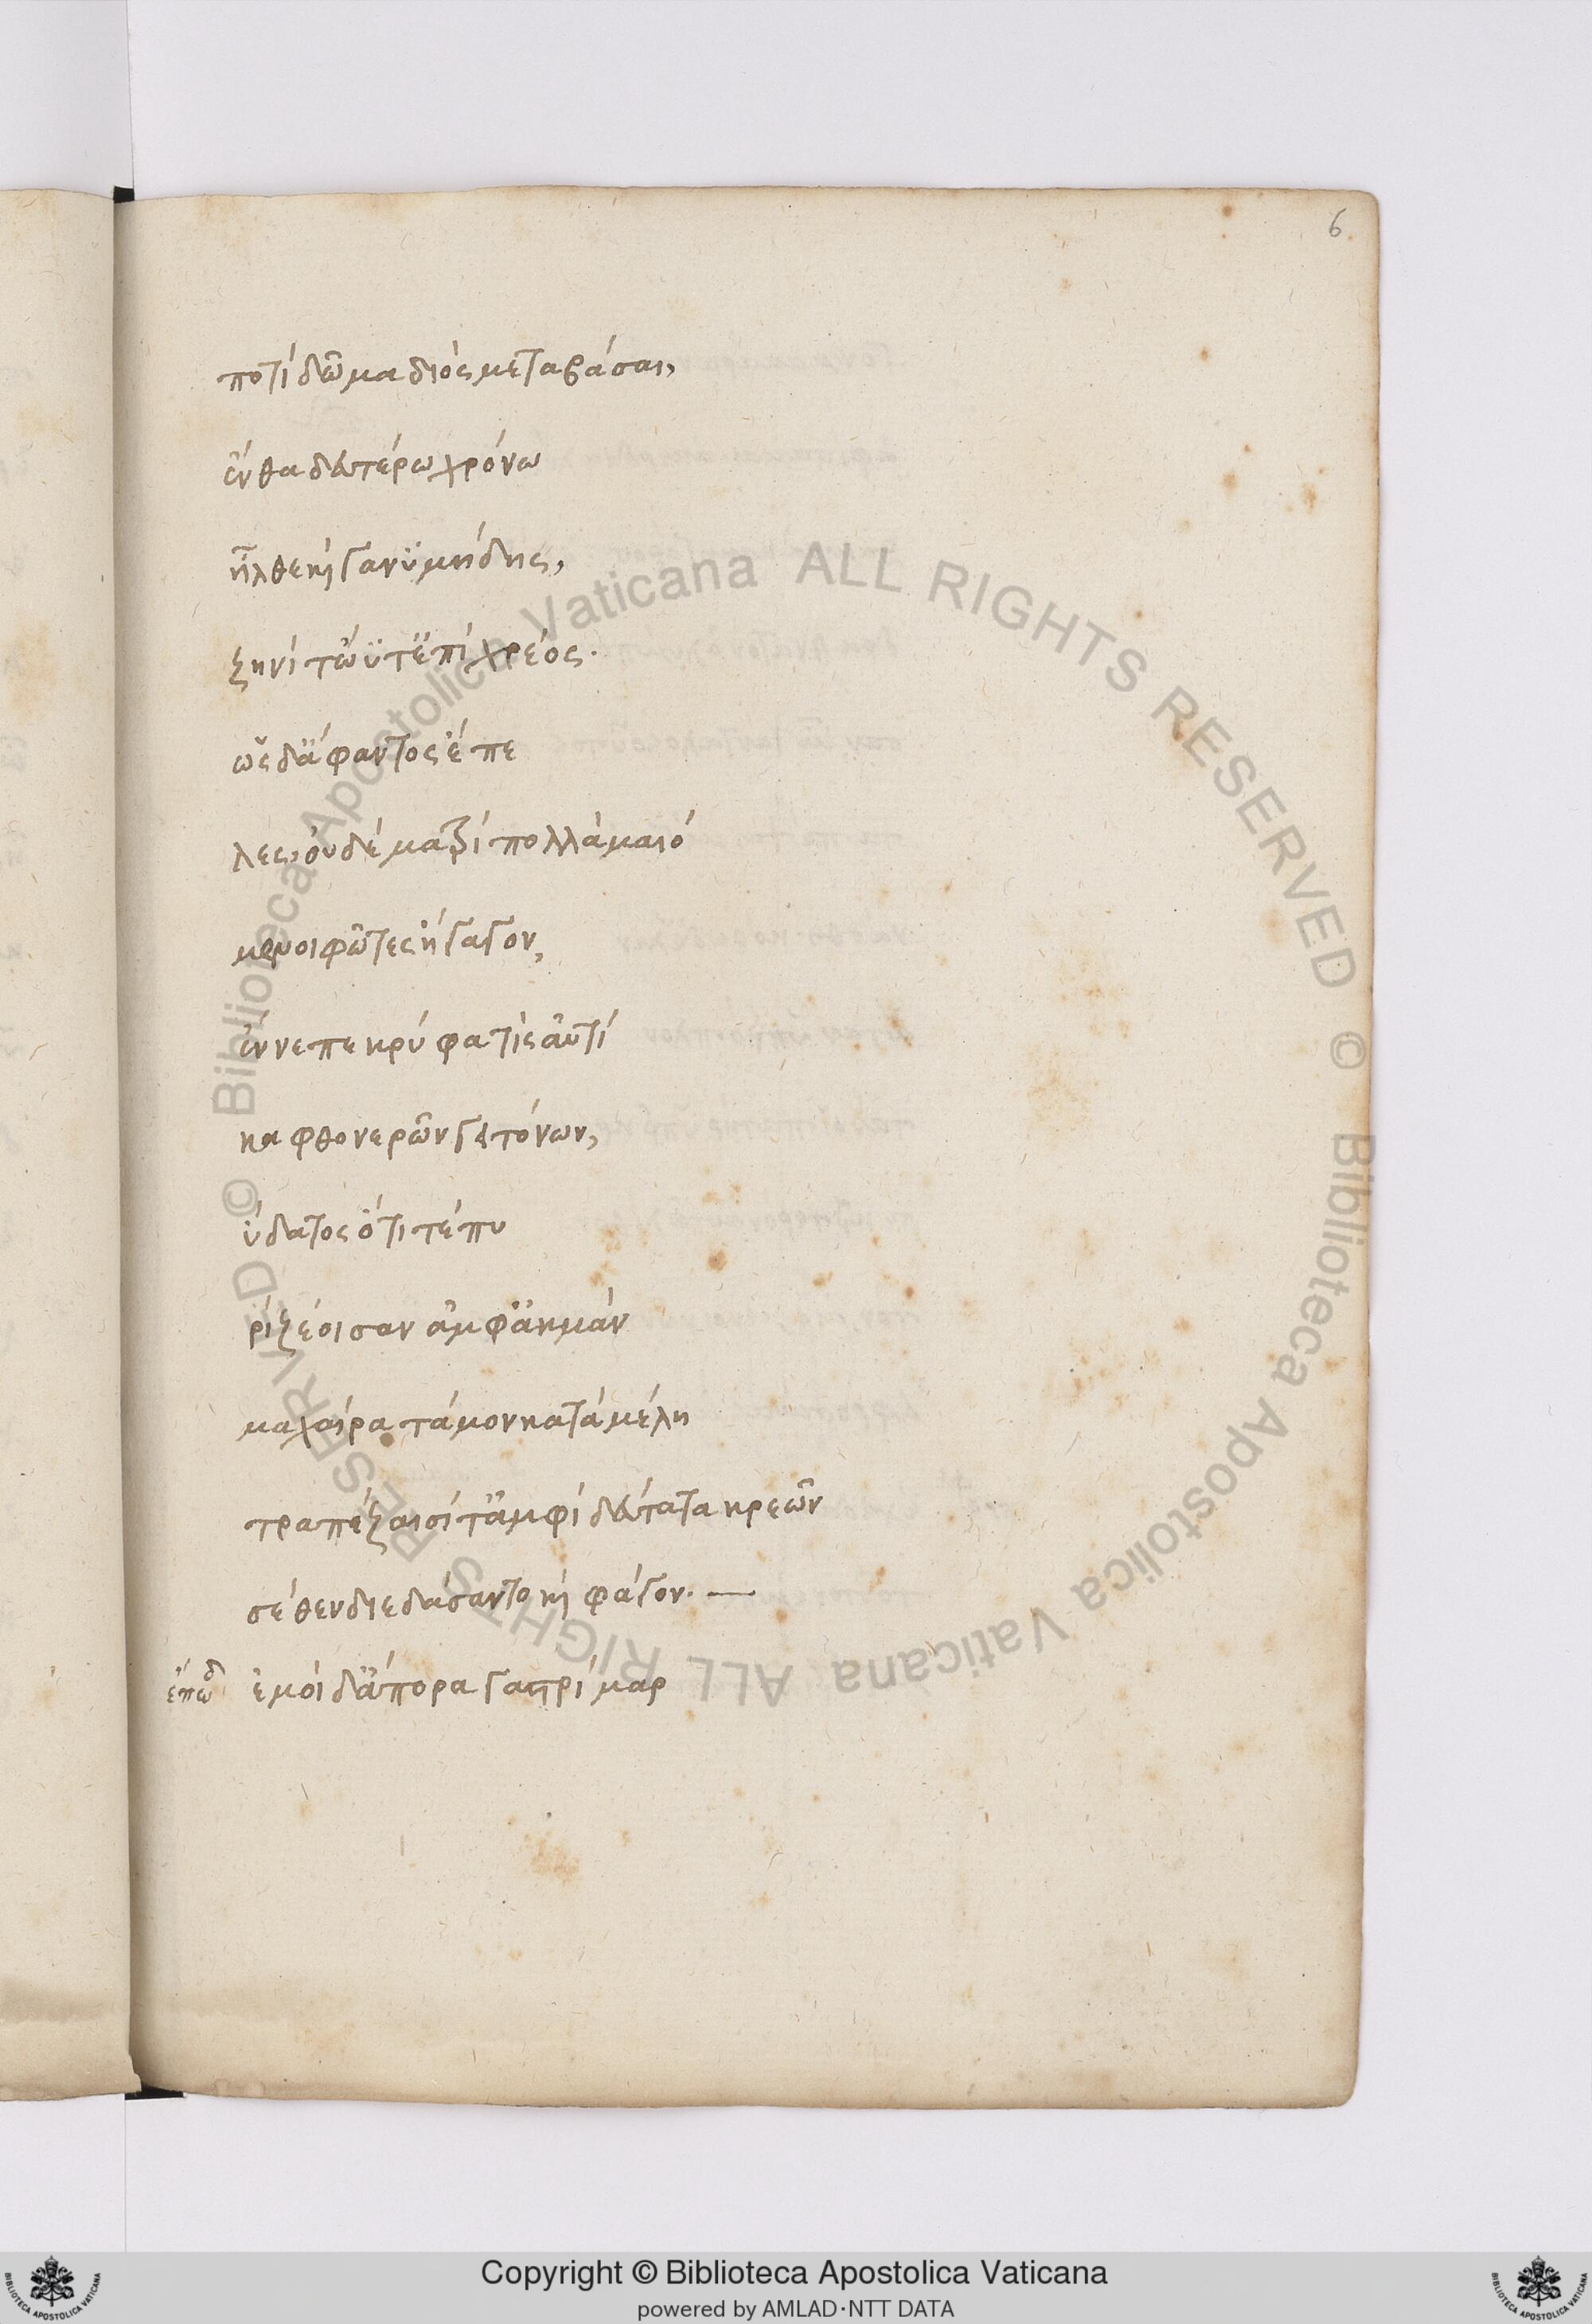 6
ποτὶ δῶμα διὸς μεταβάσαι,
ἔνθα δευτέρω χρόνω
ἦλθε καὶ γανϋμήδης,
ζηνὶ τωὔτ' ἐπὶ χρέος.
ὡς δ' ἄφαντος ἔπε
λες, οὐδὲ ματρὶ πολλὰ μαιό
μενοι φῶτες ἤγαγον,
ἔννεπε κρυφᾶ τὶς αὐτί
κα φθονερῶν γειτόνων,
ὕδατος ὅτι τέ πυ
ρὶ ζέοισαν ἀμφ' ἀκμὰν
μαχαίρα τάμον κατὰ μέλη
τραπέζαισί τ' ἀμφὶ δεύτατα κρεῶν
σέθεν διεδάσαντο καὶ φάγον. —
ἐπωδ ἐμοὶ δ' ἄπορα γαστρίμαρ
© Biblioteca Apostolica Vaticana ALL RIGHTS RESERVED © Biblioteca Apostolica Vaticana ALL RIGHTS RESERVED
Copyright © Biblioteca Apostolica Vaticana
powered by AMLAD·NTT DATA
BIBLIOTECA APOSTOLICA VATICANA
BIBLIOTECA APOSTOLICA VATICANA